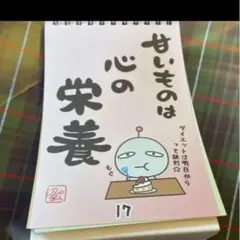 せいものは
心の
栄養
ダイエットは明日から
って鉄則☆
もぐ
17